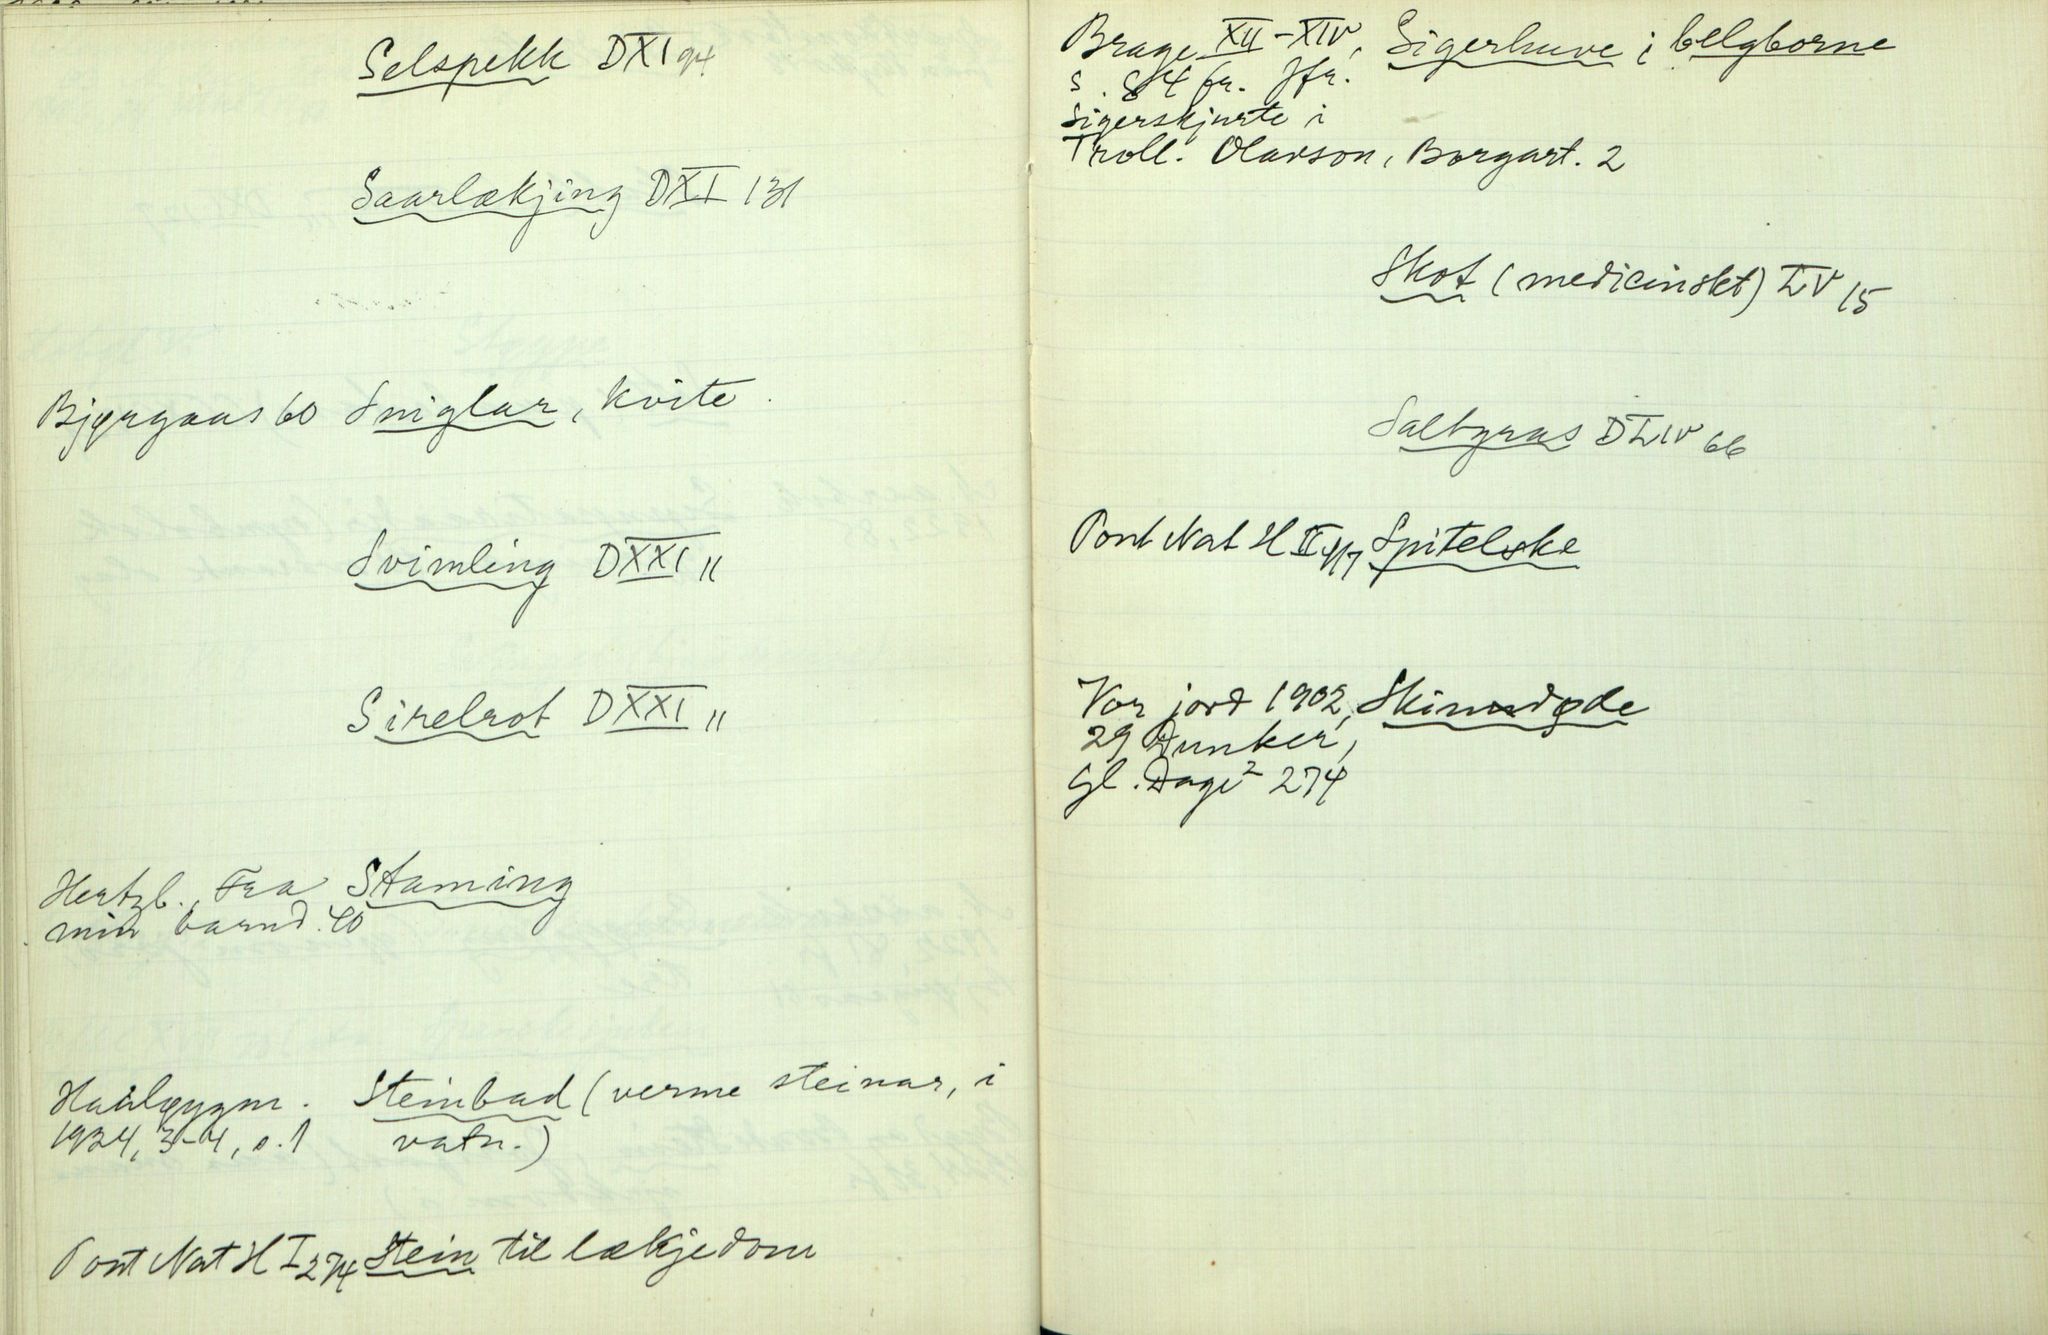 Selspekk DXI 94
Saarlækjing DXI 131
Bjørgaas 60 Sniglar, kvite
Svimling DXXI 11
Sirelrot DXXI 11
Hertzb. Fra Staming
min barnd. 40
Haaløygm. Steinbad (verme steinar, i
1924, 3-4, s. 1 vatn.)
Pont Nat H I 274 Stein til lækjedom
Brage XII-XIV, Sigerhuve i belgborne
s. 84 fr. Jfr.
Sigerskjurte i
Troll. Olavson, Borgart. 2
Skot (medicinskt) LV 15
Saltgras DLIV 66
Pont Nat H II 417 Spitelske
Vor jord 1902, Skinndøde
29 Dunker,
Gl. Dage² 274